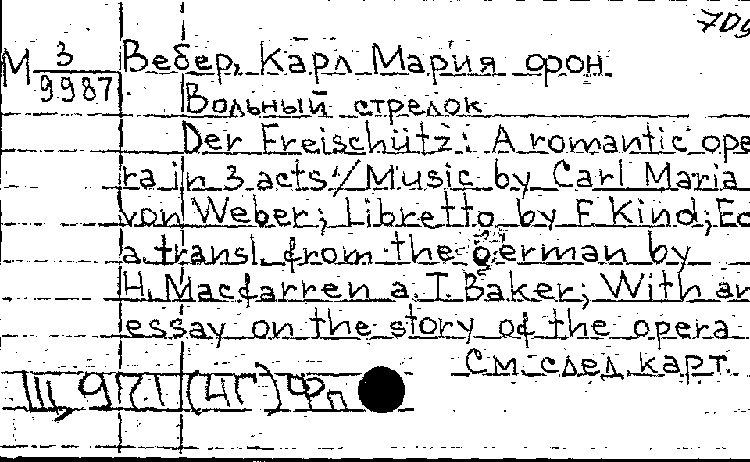 709
М 3/9987
Вебер, Карл Мария фон
Вольный стрелок
Der Freischütz: A romantic ope
ra in 3 acts / Music by Carl Maria
von Weber; Libretto by F. Kind; Ed
a. transl. from the German by
H. Macfarren a. T. Baker; With an
essay on the story of the opera
См. след. карт.